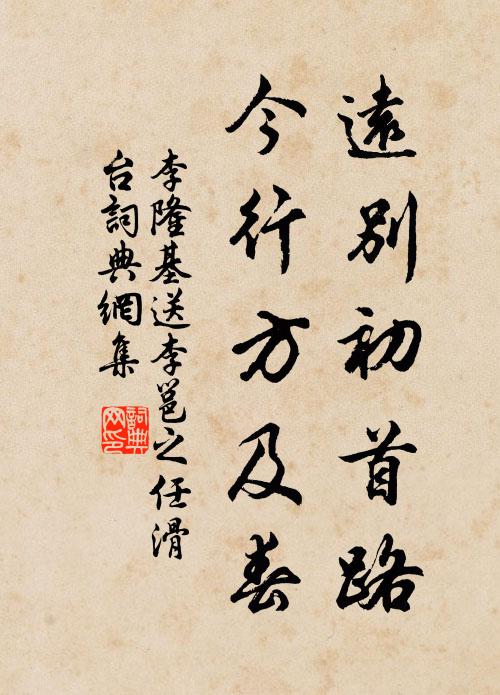 遠別初首路
今行方及春
李隆基送李邕之任滑
台詞典網集
詞典
网印